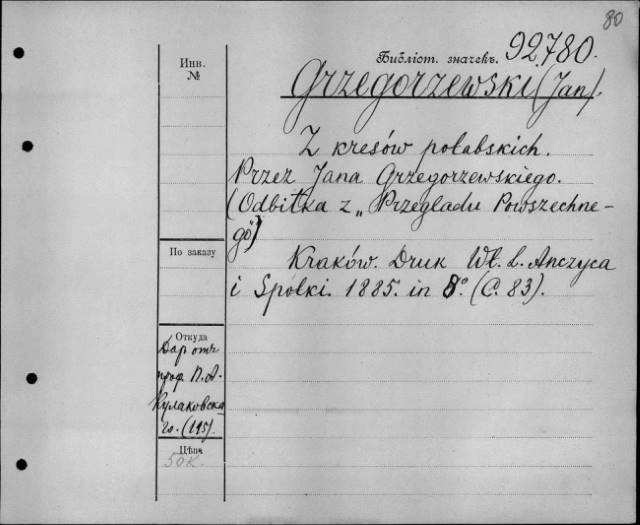 80
Инв.
№
Библіот. значекъ. 92.780.
Grzegorzewski (Jan).
Z kresów połabskich.
Przez Jana Grzegorzewskiego.
(Odbitka z „Przegladu Powszechne-
go")
По заказу
Kraków. Druk Wł. L. Anczyca
i Spółki. 1885. in 8° (C. 83).
Откуда
Дар отъ
проф. П. А.
Кулаковска-
го. (195).
Цѣна
50 к.